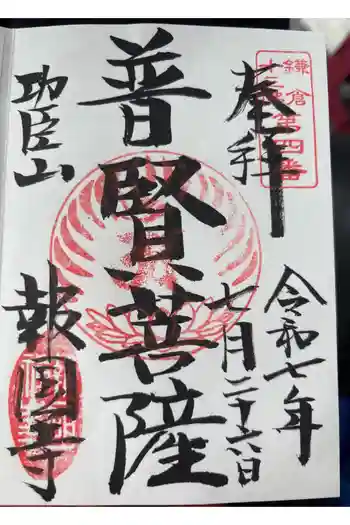 鎌倉第四番
十三佛
奉拝
令和七年
七月二十六日
普賢菩薩
功臣山
報国寺